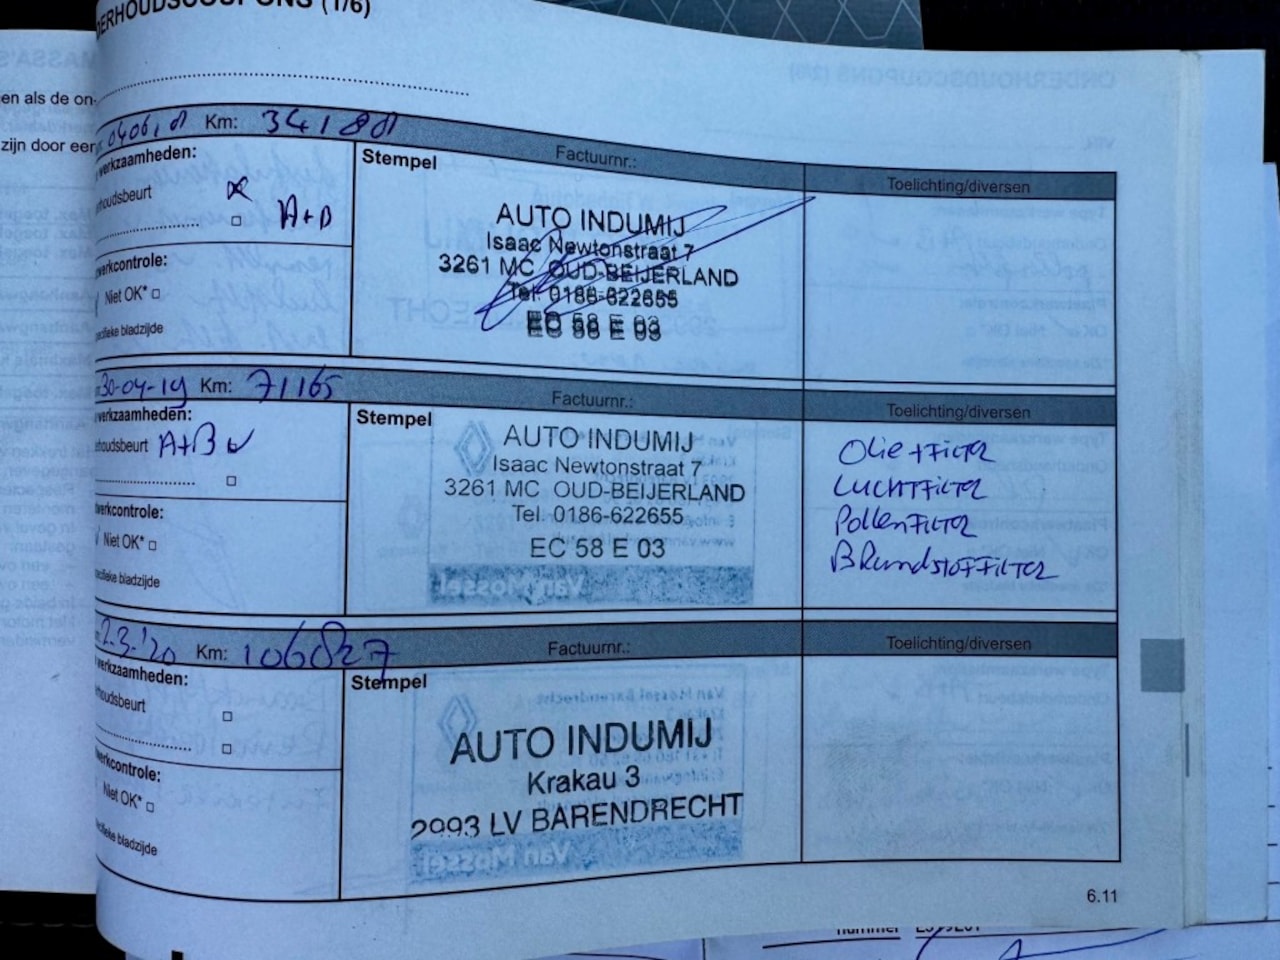 DERHOUDSCOUPONS (1/6)
en als de on-
zijn door een
Km: 34188
werkzaamheden:
Stempel
Factuurnr.:
Toelichting/diversen
houdsbeurt
A+B
AUTO INDUMIJ
Isaac Newtonstraat 7
3261 MC OUD-BEIJERLAND
Tel. 0186-622655
EC 58 E 03
werkcontrole:
Niet OK*
ecifieke bladzijde
30-04-19 Km: 71165
Factuurnr.:
Toelichting/diversen
werkzaamheden:
Stempel
houdsbeurt A+B
AUTO INDUMIJ
Isaac Newtonstraat 7
3261 MC OUD-BEIJERLAND
Tel. 0186-622655
EC 58 E 03
Olie+Filter
Luchtfilter
Pollenfilter
Brandstoffilter
werkcontrole:
Niet OK*
ecifieke bladzijde
2-3-'20 Km: 106827
Factuurnr.:
Toelichting/diversen
werkzaamheden:
Stempel
houdsbeurt
AUTO INDUMIJ
Krakau 3
2993 LV BARENDRECHT
werkcontrole:
Niet OK*
ecifieke bladzijde
6.11
nummer